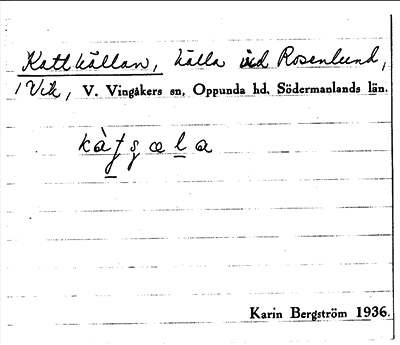 Kattkällan, källa vid Rosenlund,
1 Vik, V. Vingåkers sn, Oppunda hd, Södermanlands län.
Karin Bergström 1936.